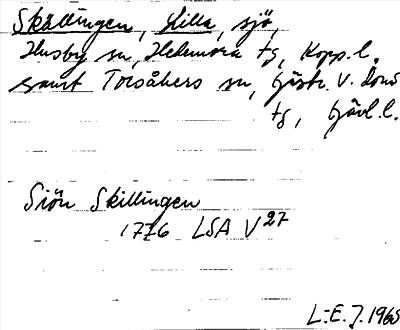 Skällingen, Lilla, sjö,
Husby sn, Hedemora tg, Kopp. l.
samt Torsåkers sn, Gästr. V. Doms
tg, Gävl. l.
Siön Skillingen
1776 LSA V27
L-E. J. 1965